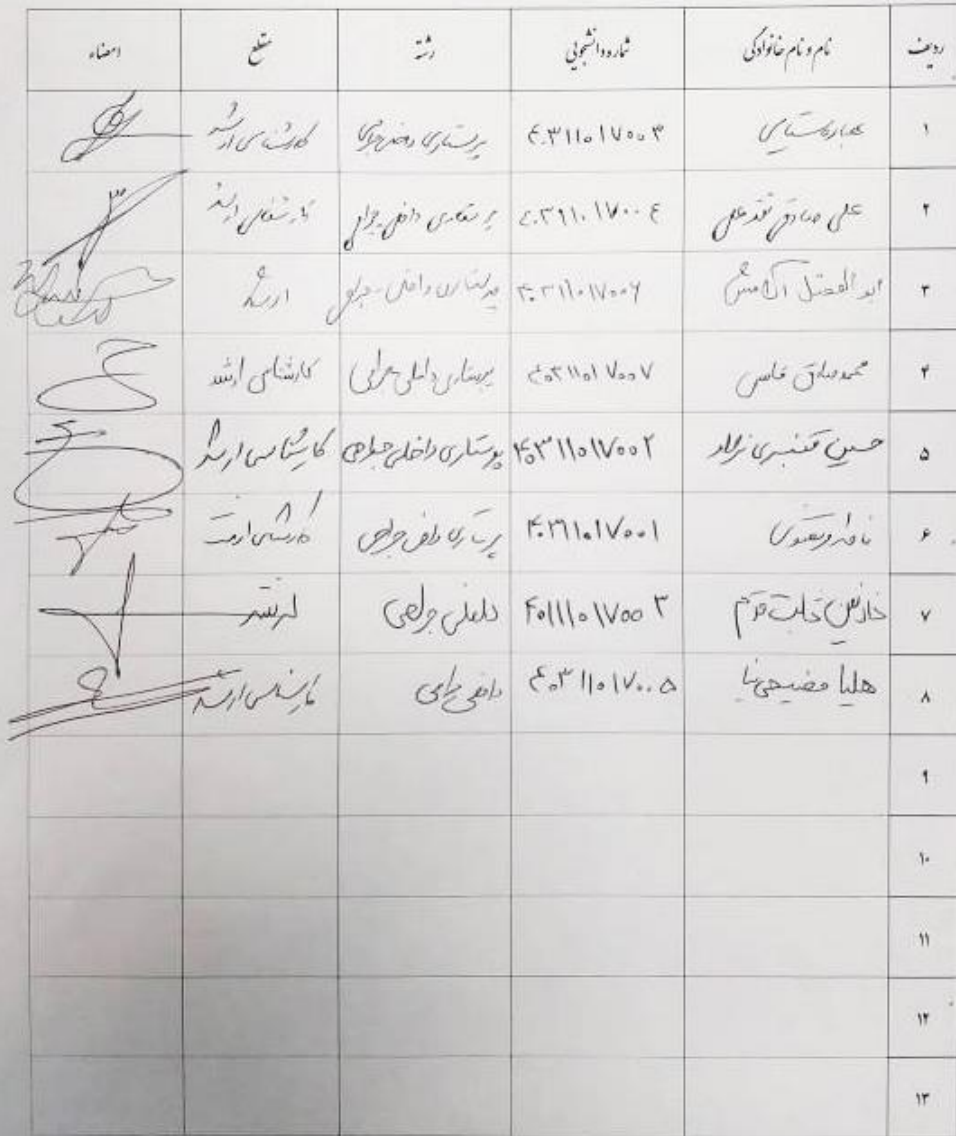 ردیف نام و نام خانوادگی شماره دانشجویی رشته مقطع امضاء
۱ ۴۰۳۱۱۰۱۷۰۰۳ پرستاری داخلی جراحی کارشناسی ارشد
۲ علی صادق نقدعلی ۴۰۳۱۱۰۱۷۰۰۴ پرستاری داخلی جراحی کارشناسی ارشد
۳ ابوالفضل آرامش ۴۰۳۱۱۰۱۷۰۰۶ پرستاری داخلی - جراحی ارشد
۴ محمدصادق ۴۰۳۱۱۰۱۷۰۰۷ پرستاری داخلی جراحی کارشناسی ارشد
۵ حسین قنبری نژاد ۴۰۳۱۱۰۱۷۰۰۲ پرستاری داخلی جراحی کارشناسی ارشد
۶ ۴۰۳۱۱۰۱۷۰۰۱ پرستاری داخلی جراحی کارشناسی ارشد
۷ ۴۰۱۱۱۰۱۷۰۰۳ داخلی جراحی ارشد
۸ هلیا فصیحی نیا ۴۰۳۱۱۰۱۷۰۰۵ داخلی جراحی کارشناسی ارشد
۹
۱۰
۱۱
۱۲
۱۳